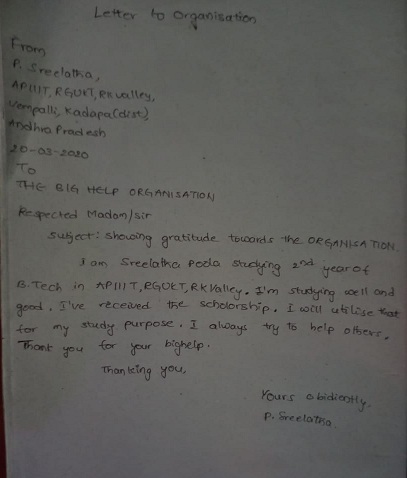 Letter to Organisation
From
P. Sreelatha,
APIIIT, RGUKT, RK valley,
Vempalli, Kadapa(dist)
Andhra Pradesh
20-03-2020
To
THE BIG HELP ORGANISATION
Respected Madam/sir
Subject: showing gratitude towards the ORGANISATION.
I am Sreelatha Poda studying 2nd year of
B.Tech in APIIIT, RGUKT, RK Valley. I'm studying well and
good. I've received the scholorship. I will utilise that
for my study purpose. I always try to help others.
Thank you for your bighelp.
Thanking you,
Yours obidiantly.
P. Sreelatha.